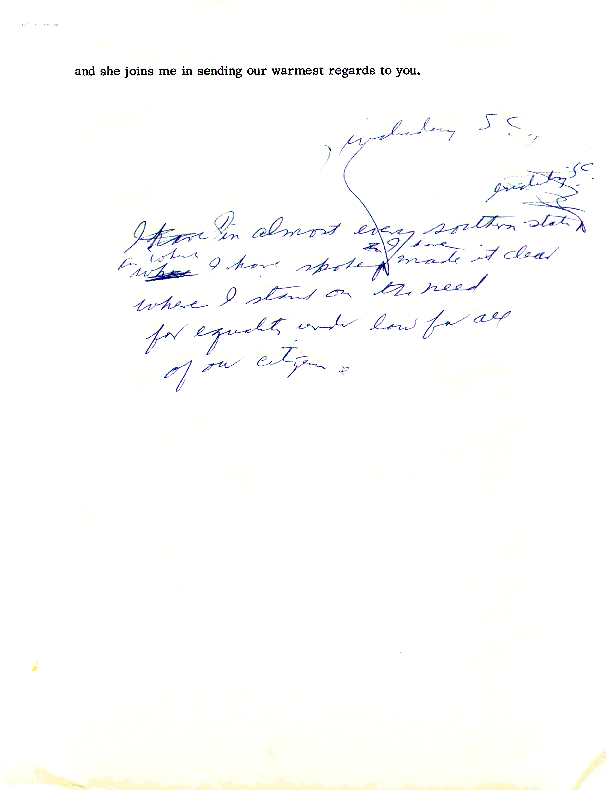 and she joins me in sending our warmest regards to you.
, including S.C.,
including S.C.
I have in almost every southern state
in which I have spoken I have made it clear
where I stand on the need
for equality under law for all
of our citizens.